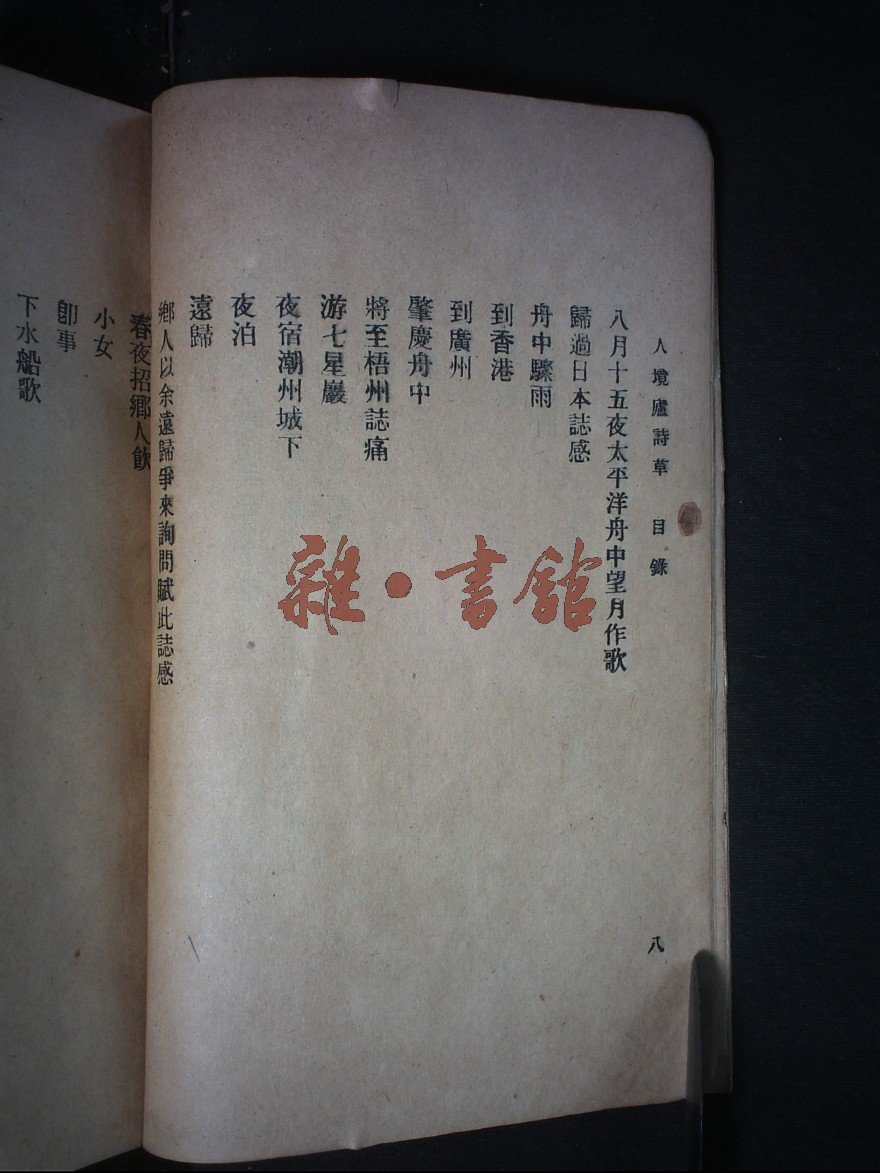 人境廬詩草　目錄　八
八月十五夜太平洋舟中望月作歌
歸過日本誌感
舟中驟雨
到香港
到廣州
肇慶舟中
將至梧州誌痛
游七星巖
夜宿潮州城下
夜泊
遠歸
鄉人以余遠歸爭來詢問賦此誌感
春夜招鄉人飲
小女
卽事
下水船歌
雜·書館